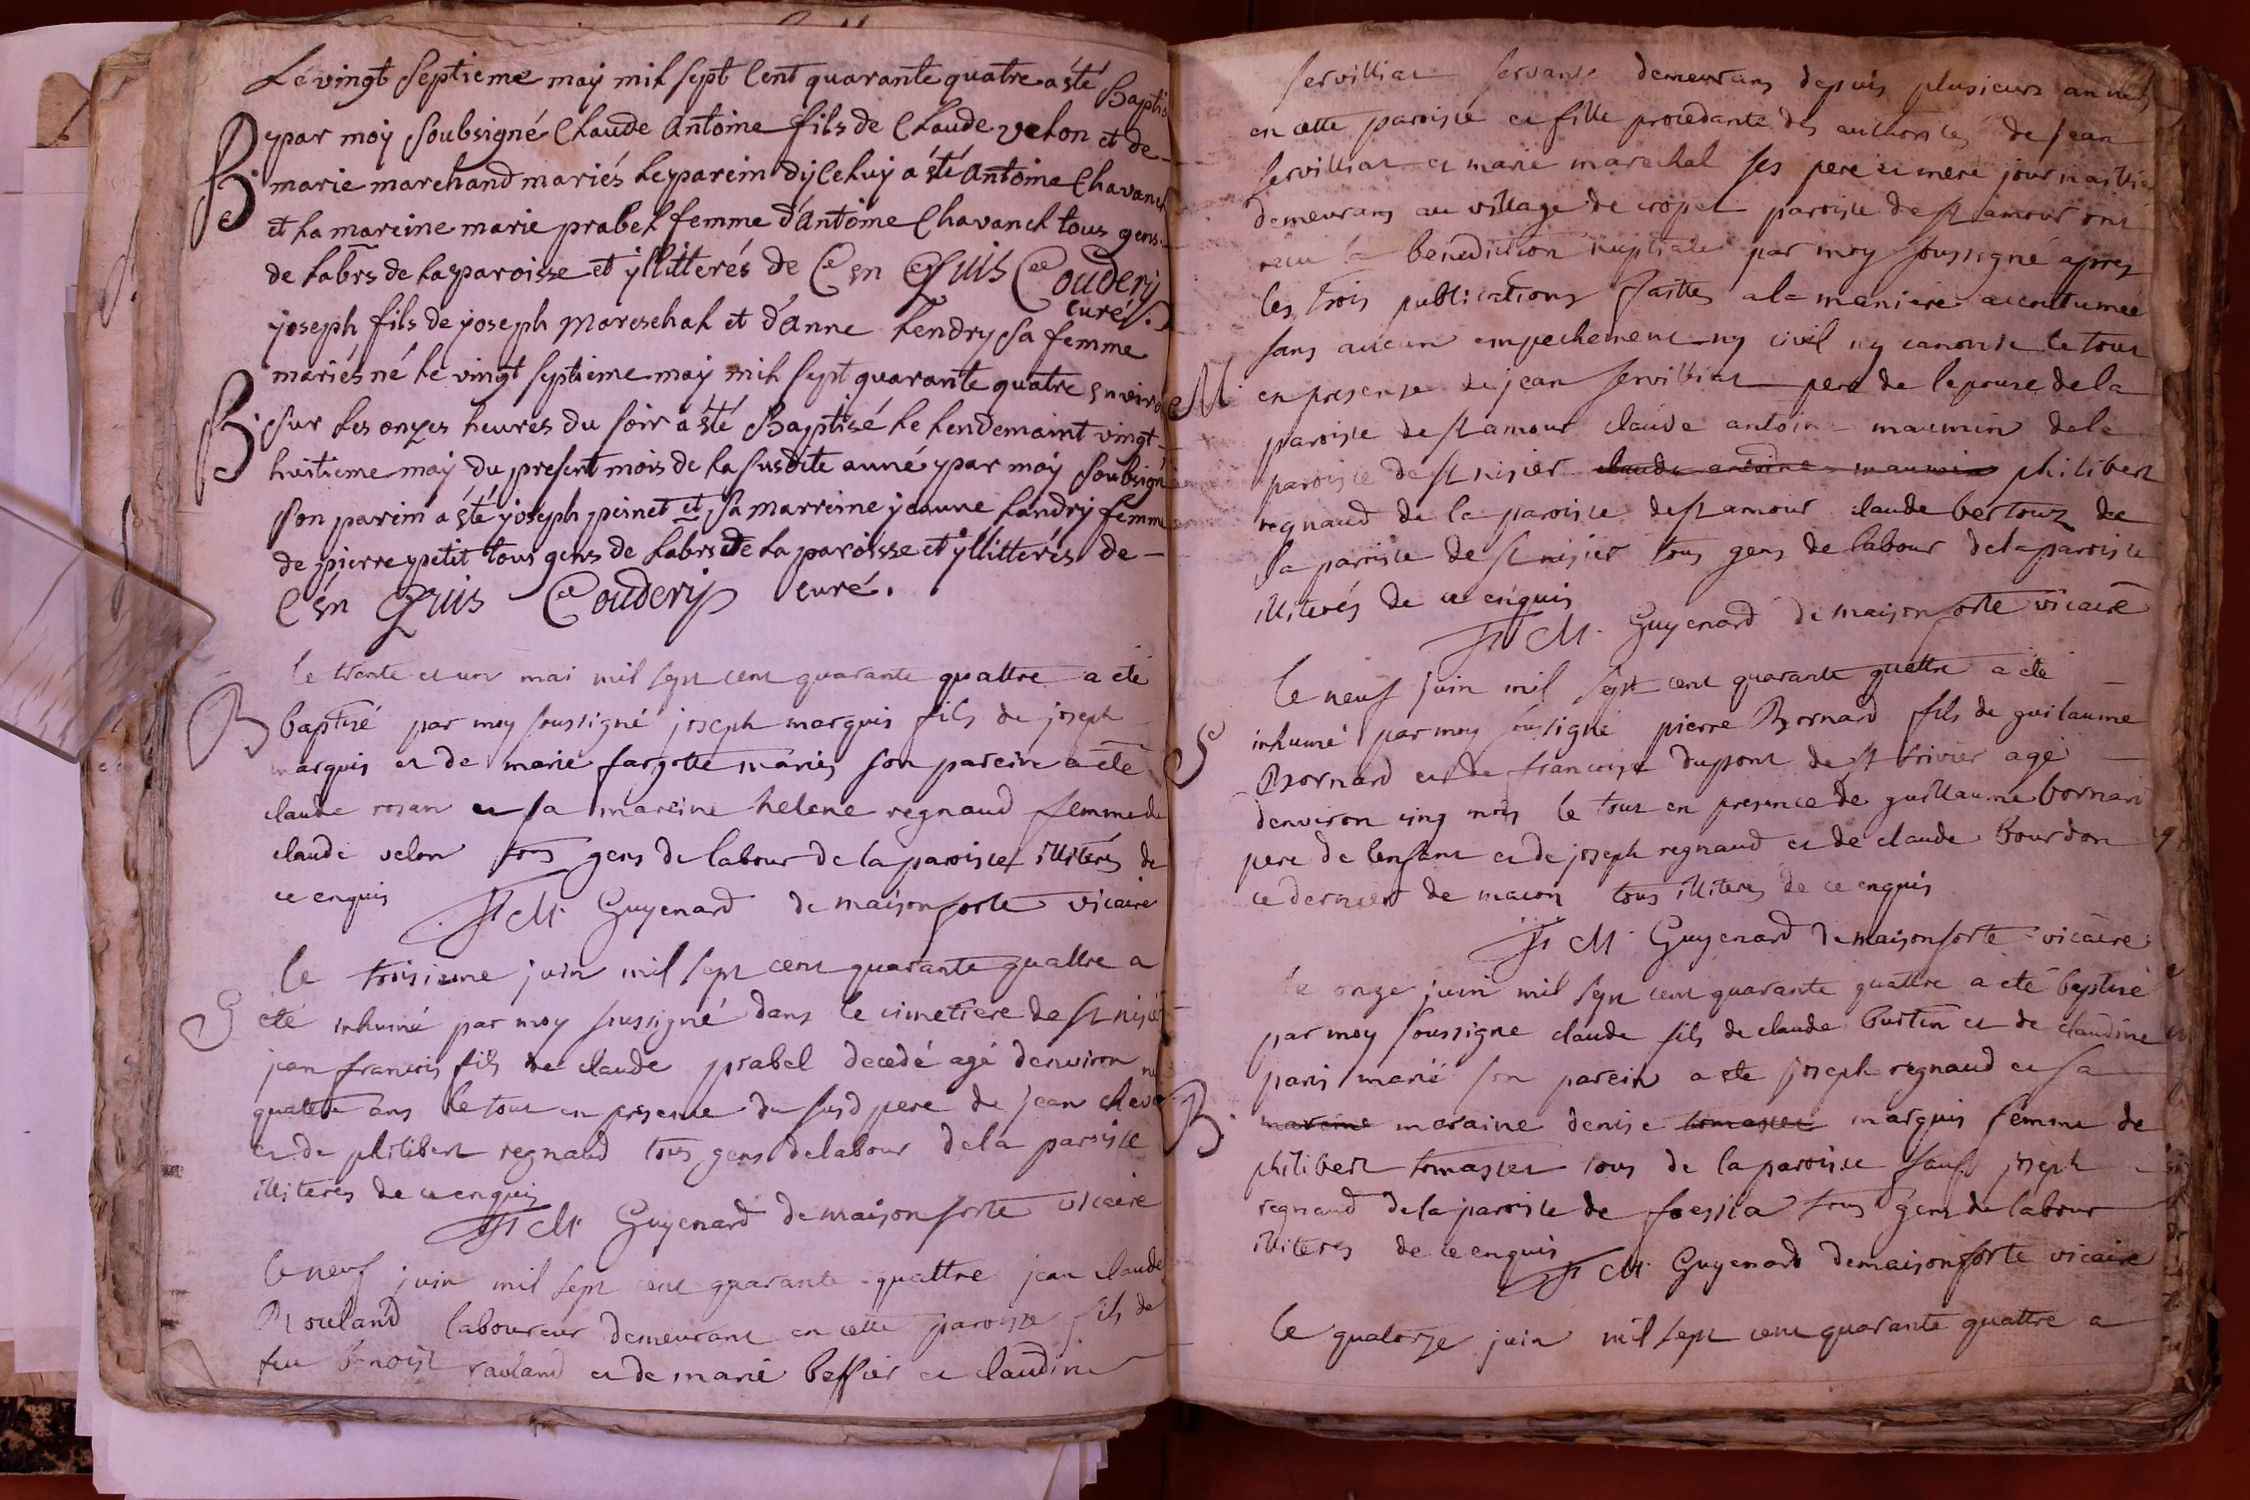 Le vingt septieme may mil sept cent quarante quatre a été Baptisé
B. par moy soubsigné Claude Antoine fils de Claude velon et de
marie marchand mariés le parein dyceluy a été Antoine Chavanel
et la mareine marie prabel femme d'Antoine Chavanel tous gens
de labrs de la paroisse et yllitterés de Ce en Quis Couderij
curé.
joseph fils de joseph Mareschal et d'Anne Lendry sa femme
mariés né le vingt septieme may mil sept quarante quatre environ
B. sur les onzes heures du soir a été Baptisé le lendemaint vingt-
huitieme may du present mois de la susdite anné par moy soubsigné
son parein a été joseph peinet et sa marreine jeanne Landry femme
de pierre petit tous gens de labrs de la paroisse et yllitterés de
C én Quis Couderij curé.
le trente et un mai mil sept cent quarante quattre a été
B baptisé par moy soussigné joseph marquis fils de joseph
marquis et de marie fargette mariés son parein a été
claude rosan et sa mareine helene regnaud femme de
claude velon tous gens de labour de la paroisse illiterés de
ce enquis Fr M. Guyenard de maisonforte vicaire
le troisieme juin mil sept cent quarante quattre a
S été inhumé par moy soussigné dans le cimetiere de St nisier
jean francois fils de claude prabel decedé agé denviron
quatre ans le tout en presence du susd pere de jean
et de philibert regnaud tous gens de labour de la paroisse
illiteres de ce enquis
Fr M. Guyenard de maisonforte vicaire
le neuf juin mil sept cent quarante quattre jean claude
Rouland laboureur demeurant en cette paroisse fils de
feu benoist rauland et de marie bessier et claudine
servilliat servante demeurans depuis plusieurs années
en cette paroisse et fille procedante des authorités de jean
servilliat et marie marechal ses pere et mere journaillier
demeurans au village de cropet paroisse de St amour ont
recu la benediction nuptiale par moy soussigné apres
les trois publications faittes a la maniere accoutumée
sans aucun empechement ny civil ny canonic le tout
M. en presense de jean servilliat pere de lepouse de la
paroisse de St amour claude antoine maumin de la
paroisse de St nisier claude antoine maumin philibert
regnaud de la paroisse de St amour claude bertouz de
la paroisse de St nisier tous gens de labour de la paroisse
illiterés de ce enquis
Fr M. Guyenard de maisonforte vicaire
le neuf juin mil sept cent quarante quattre a été
S inhumé par moy soussigné pierre Bornard fils de guilaume
Bornard et de francoise dupont de St trivier agé
denviron cinq mois le tout en presence de guillaume bornard
pere de lenfant et de joseph regnaud et de claude bourdon
ce dernier de macon tous illiteres de ce enquis
Fr M. Guyenard de maisonforte vicaire
le onze juin mil sept cent quarante quattre a été baptisé
par moy soussigne claude fils de claude burtin et de claudine
paris marié son parein a ete joseph regnaud et sa
B. mareine maraine denise tomasset marquis femme de
philibert tomasset tous de la paroisse sauf joseph
regnaud de la paroisse de foessia tous gens de labour
illiteres de ce enquis
Fr M. Guyenard de maisonforte vicaire
le quatorze juin mil sept cent quarante quattre a